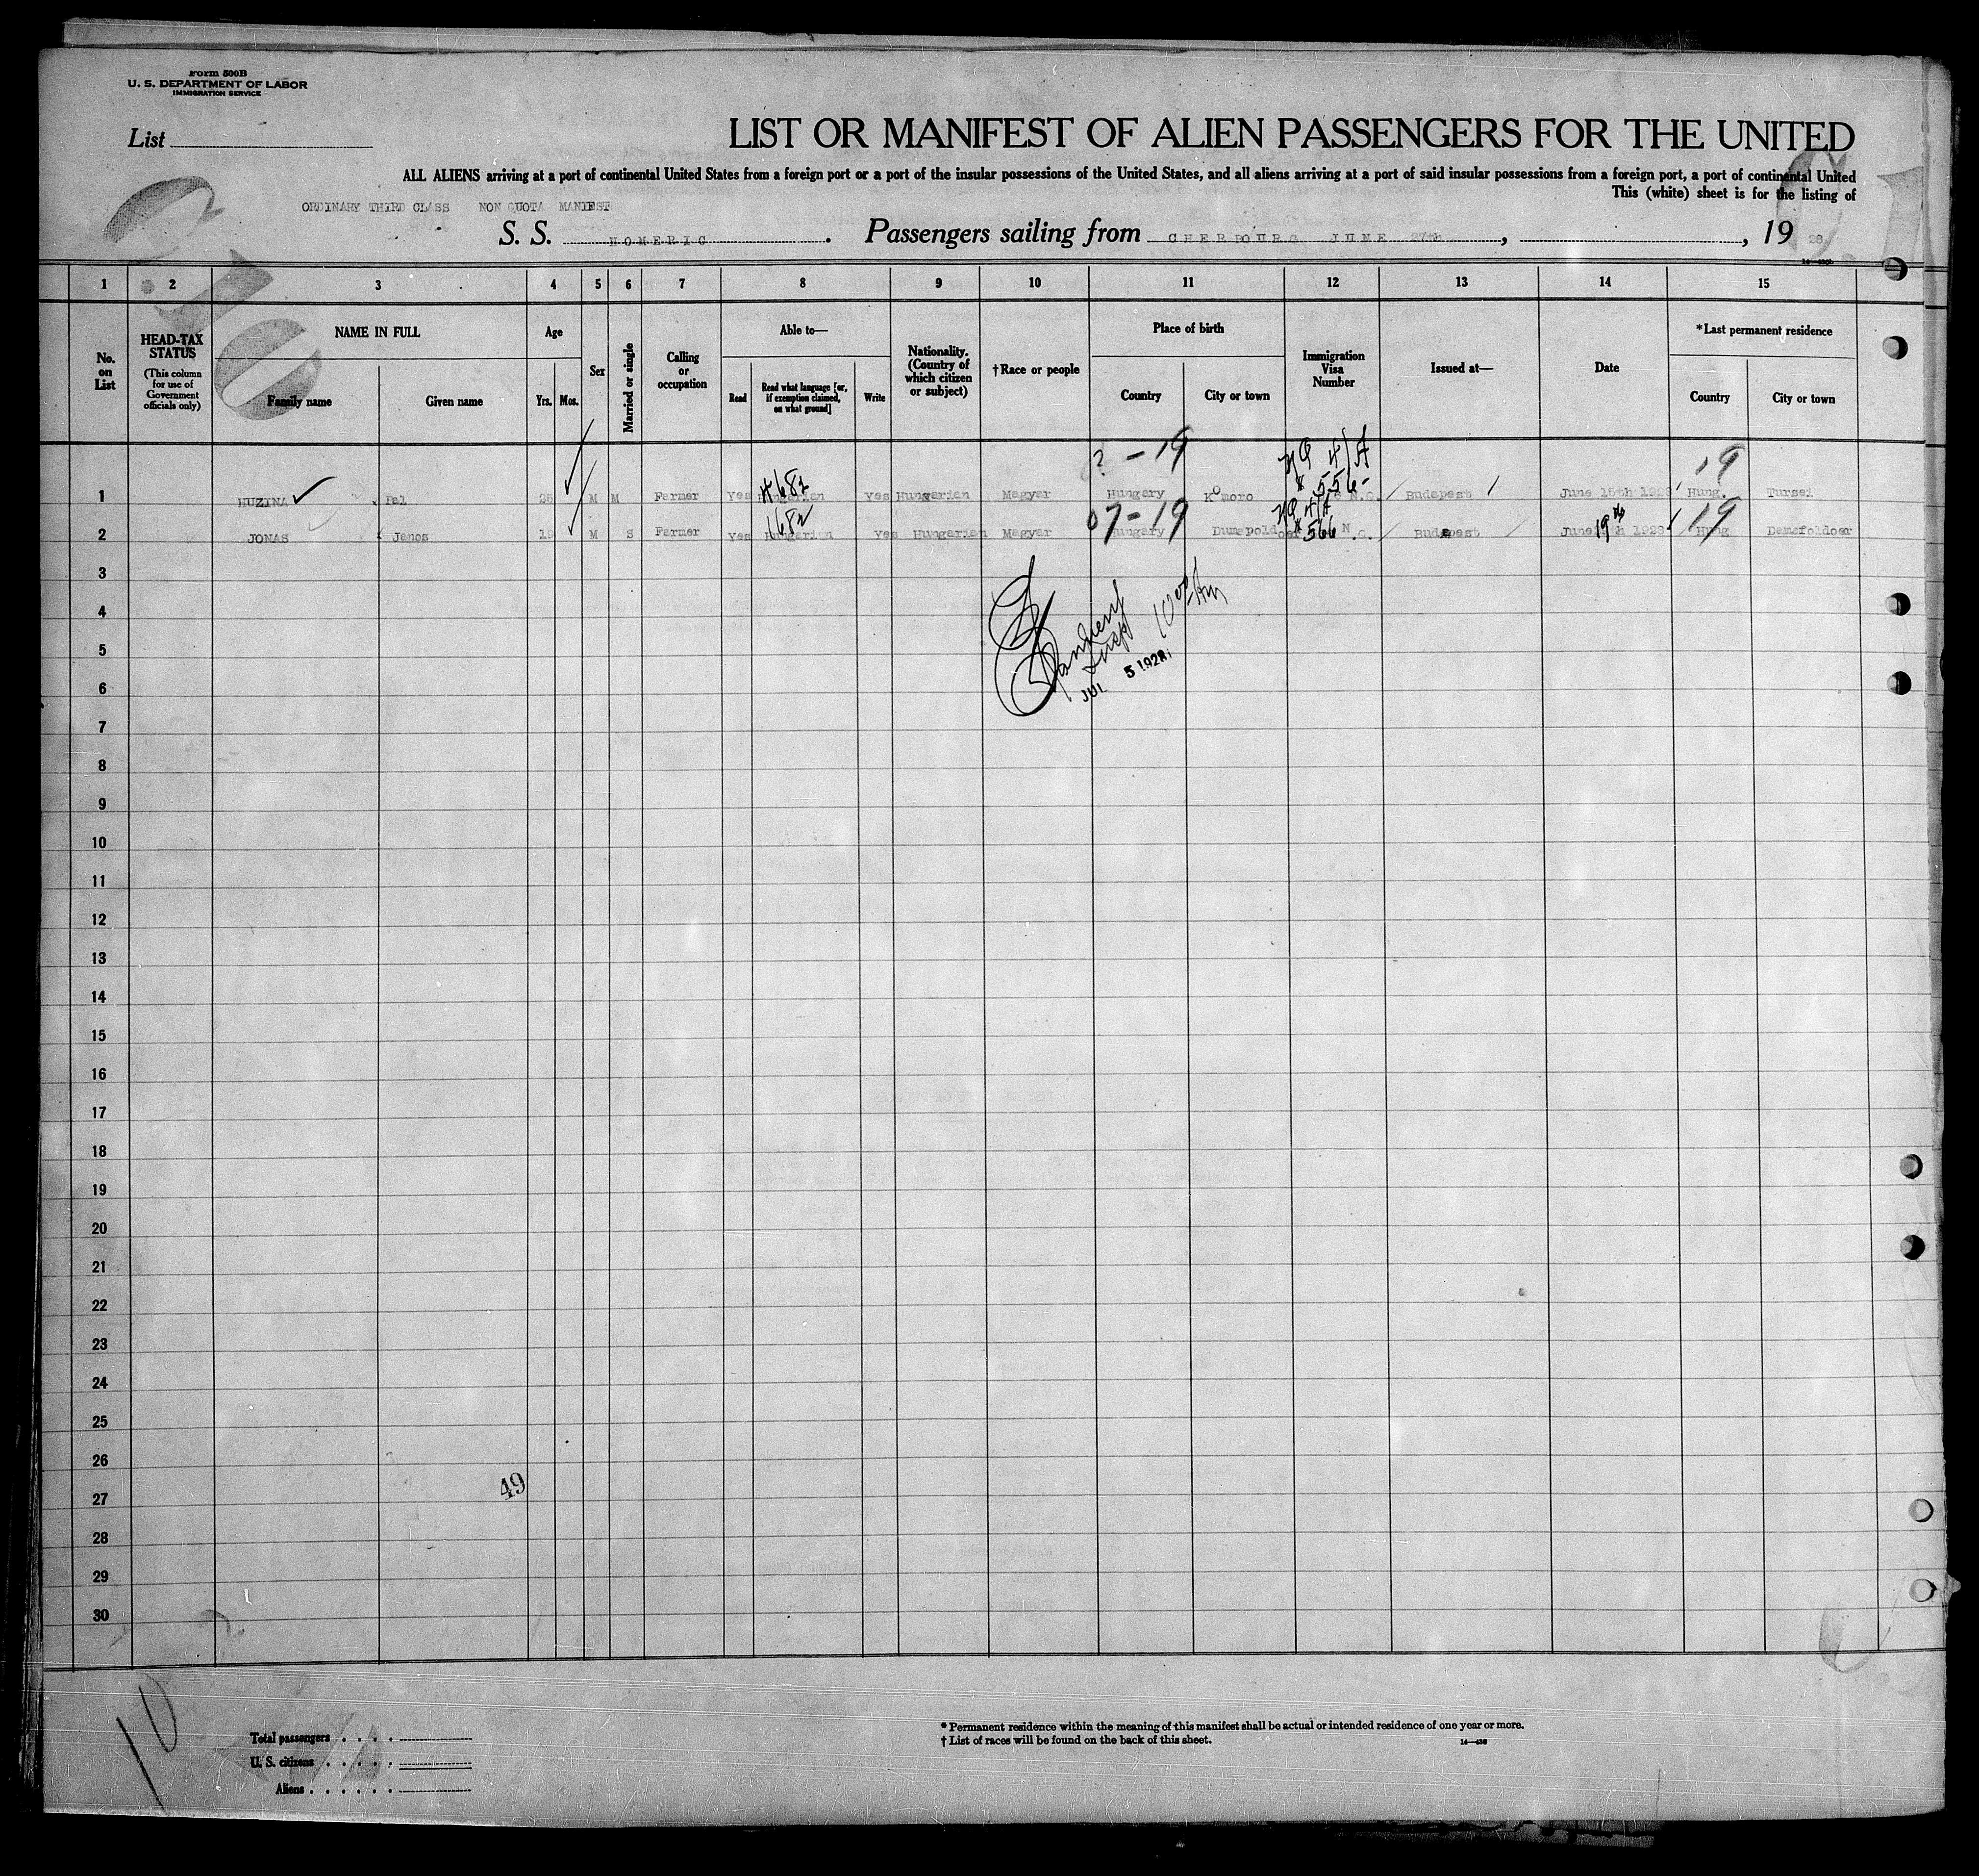 Form 500B
U. S. DEPARTMENT OF LABOR
IMMIGRATION SERVICE
List
LIST OR MANIFEST OF ALIEN PASSENGERS FOR THE UNITED
ALL ALIENS arriving at a port of continental United States from a foreign port or a port of the insular possessions of the United States, and all aliens arriving at a port of said insular possessions from a foreign port, a port of continental United
This (white) sheet is for the listing of
ORDINARY THIRD CLASS NON QUOTA MANIEST
S. S. HOMERIC. Passengers sailing from CHERBOURG JUNE 27th, , 19 28
1 2 3 4 5 6 7 8 9 10 11 12 13 14 15
No. on List
HEAD-TAX STATUS
(This column for use of Government officials only)
NAME IN FULL
Family name
Given name
Age
Yrs. Mos.
Sex
Married or single
Calling or occupation
Able to—
Read
Read what language [or, if exemption claimed, on what ground]
Write
Nationality. (Country of which citizen or subject)
†Race or people
Place of birth
Country
City or town
Immigration Visa Number
Issued at—
Date
*Last permanent residence
Country
City or town
? - 19 NQ 4/A 19
1 HUZINA Pal M M Farmer Yes Hungarian Yes Hungarian Magyar Hungary Komoro 556 N.Q. Budapest June 15th 1928 Hung. Tursei
07-19 NQ 4/A 19
2 JONAS Janos 19 M S Farmer Yes Hungarian Yes Hungarian Magyar Hungary 566 N.Q. Budapest June 19th 1928 Hung
3
4
5
6
7
8
9
10
11
12
13
14
15
16
17
18
19
20
21
22
23
24
25
26
27
28
29
30
Insp
JUL 5 1928
49
10
Total passengers
U. S. citizens
Aliens
* Permanent residence within the meaning of this manifest shall be actual or intended residence of one year or more.
† List of races will be found on the back of this sheet.
14—436